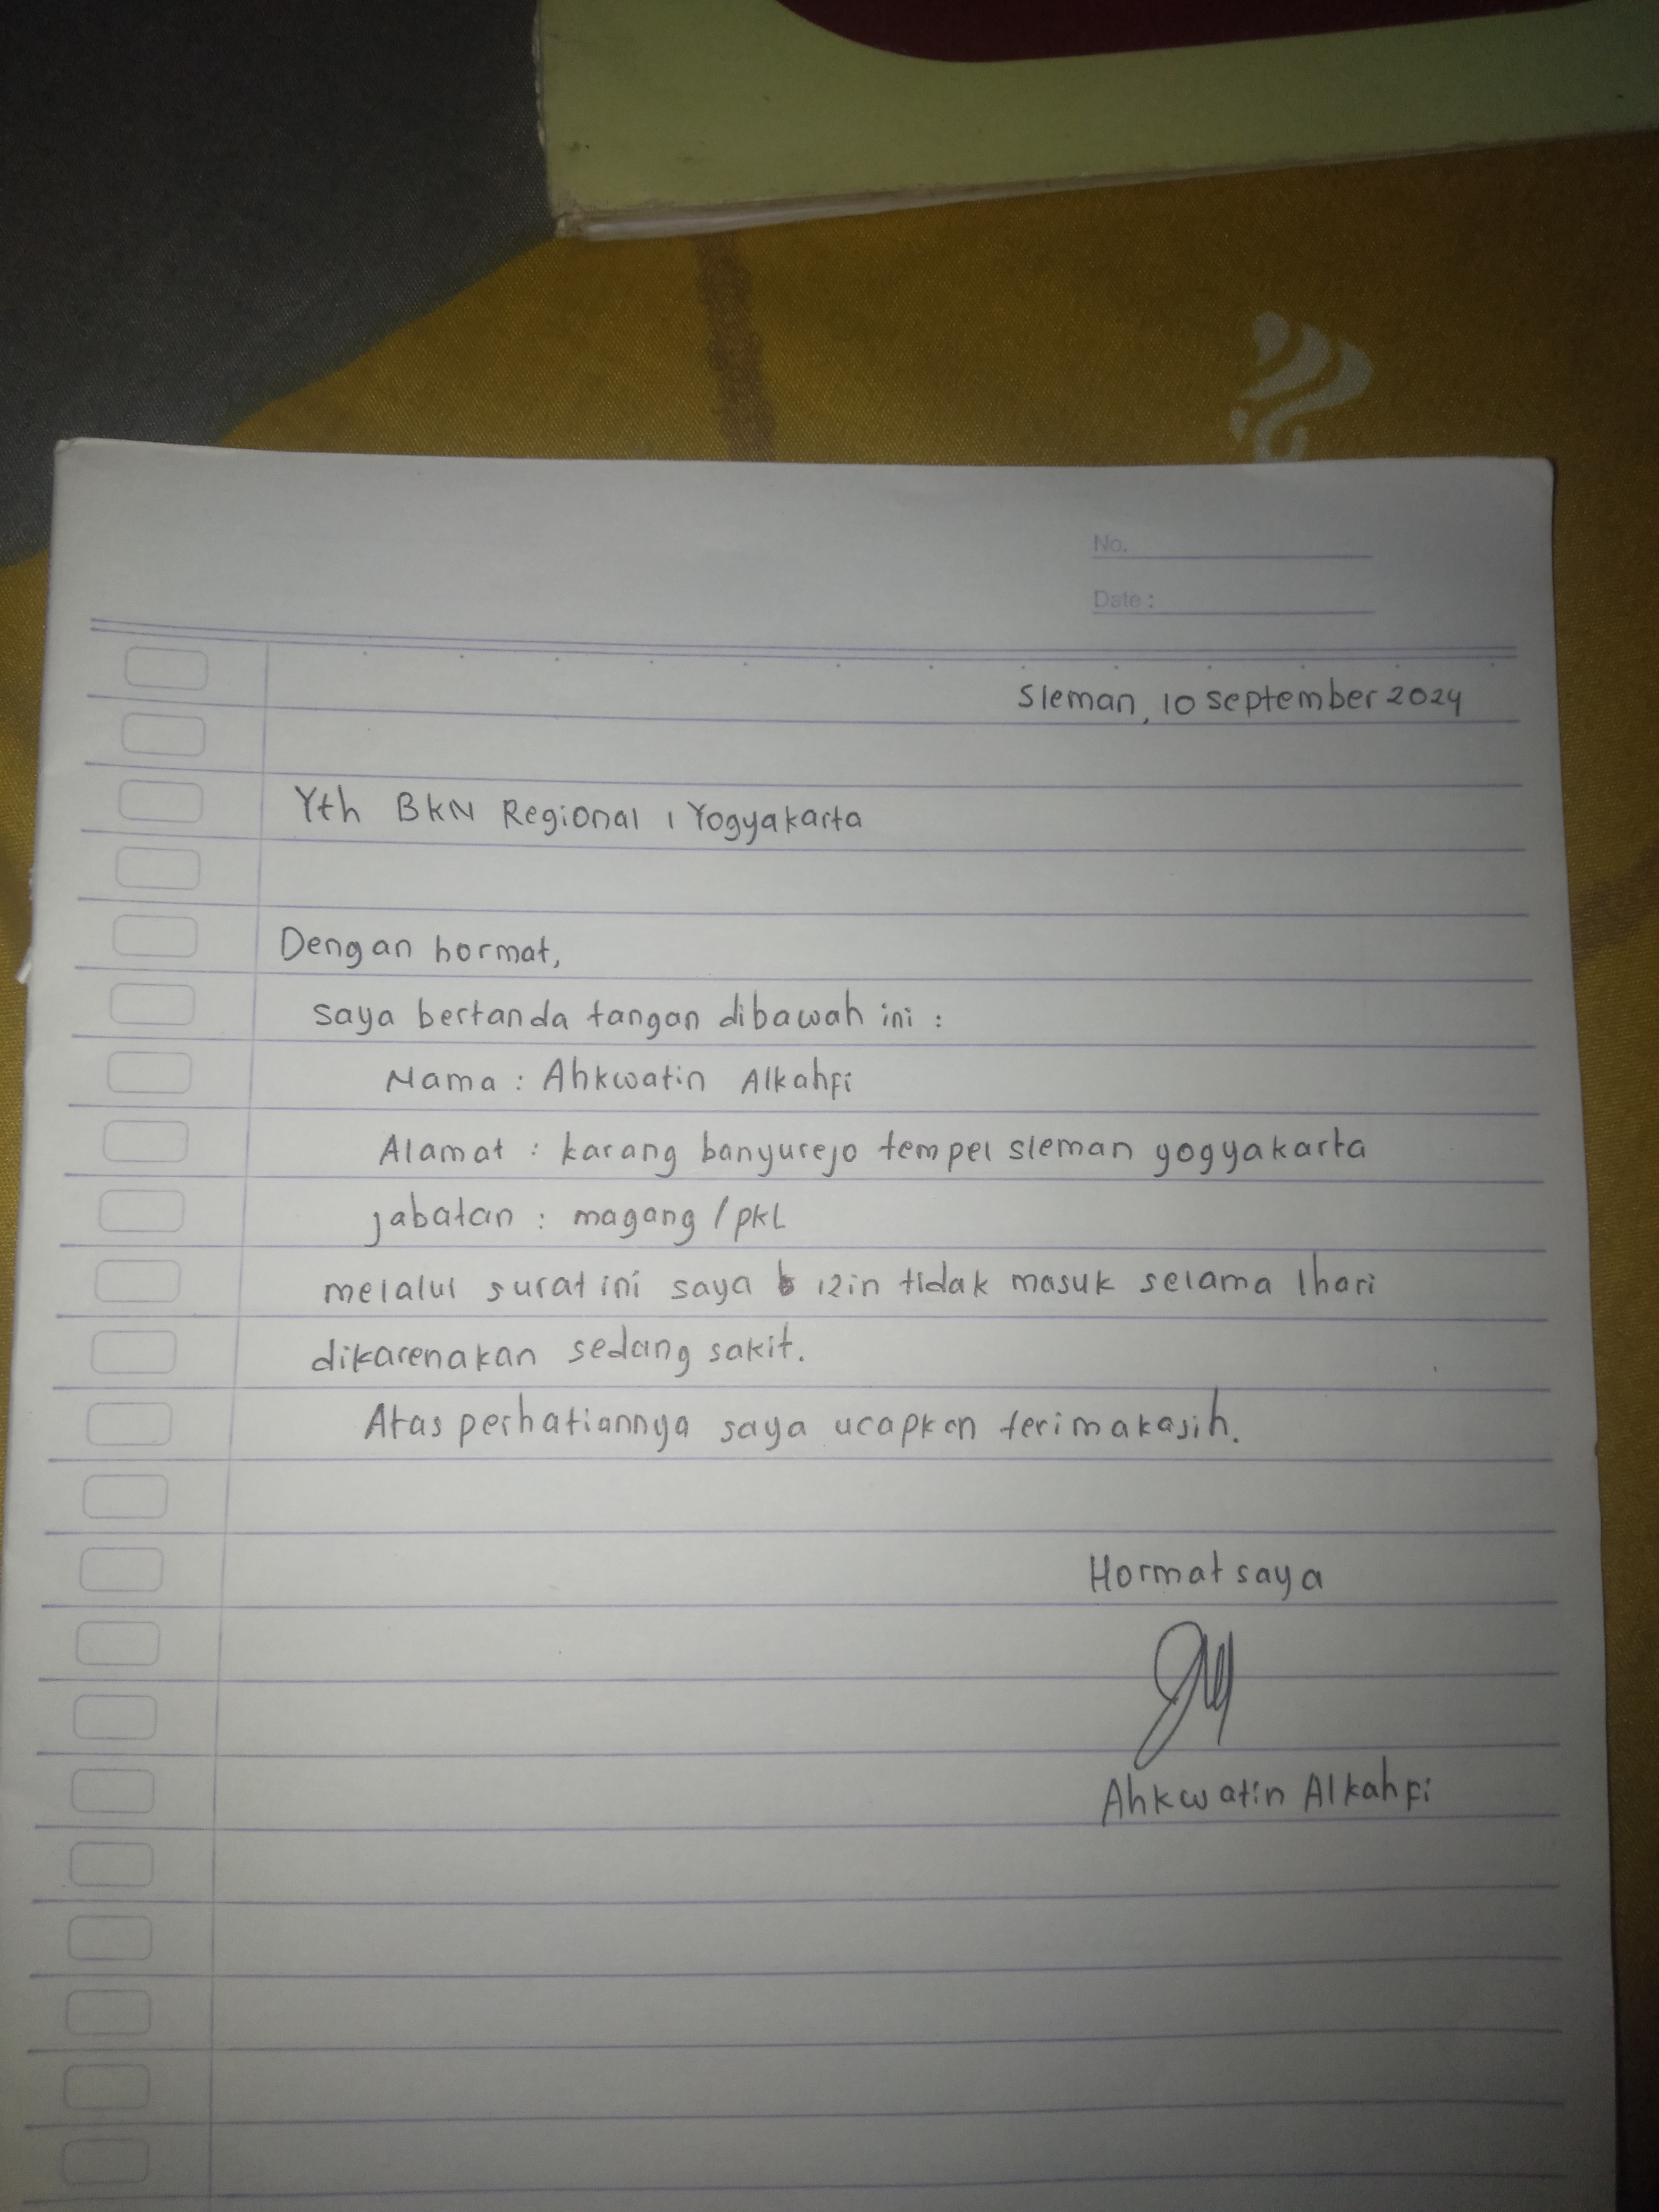 No.
Date :
Sleman, 10 September 2024
Yth BKN Regional 1 Yogyakarta
Dengan hormat,
saya bertanda tangan dibawah ini :
Nama : Ahkwatin Alkahfi
Alamat : karang banyurejo tempel sleman yogyakarta
jabatan : magang / pkl
melalui surat ini saya izin tidak masuk selama 1 hari
dikarenakan sedang sakit.
Atas perhatiannya saya ucapkan terimakasih.
Hormat saya
Ahkwatin Alkahfi